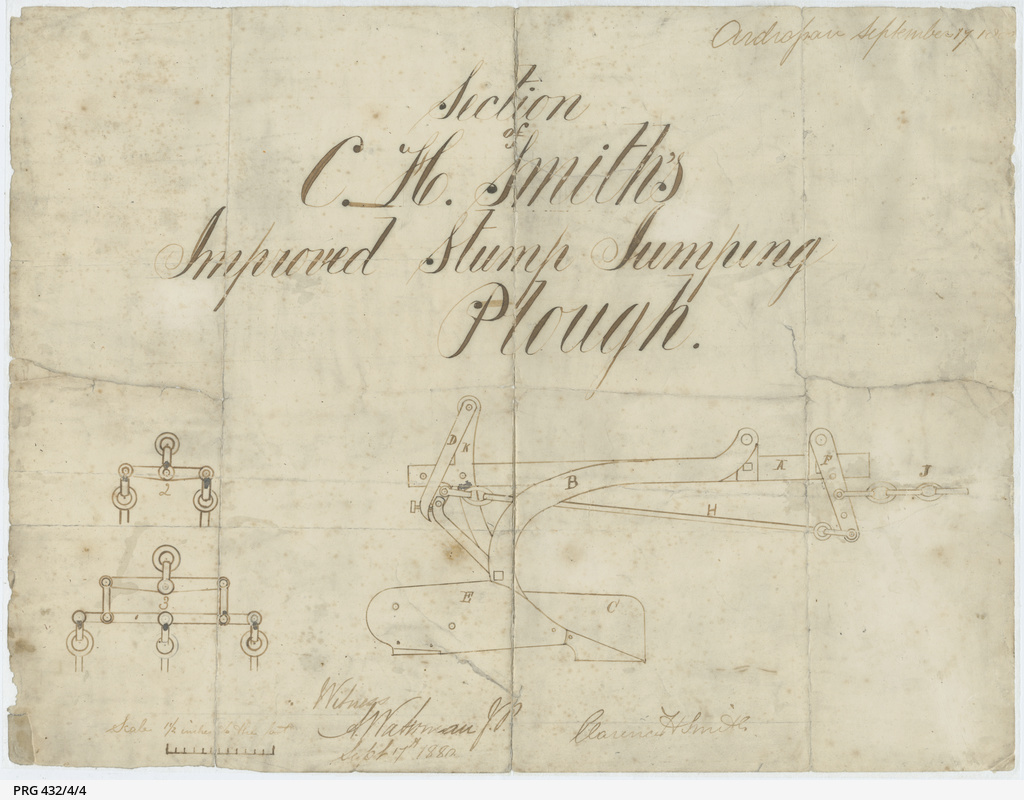 Ardrossan September 17
Section
of
C. H. Smith's
Improved Stump Jumping
Plough.
D K
B
A
P
J
H
2
3
E
C
Witness
J.P.
Sept 7th 1882
Clarence H Smith
Scale 1½ inches to the foot
PRG 432/4/4